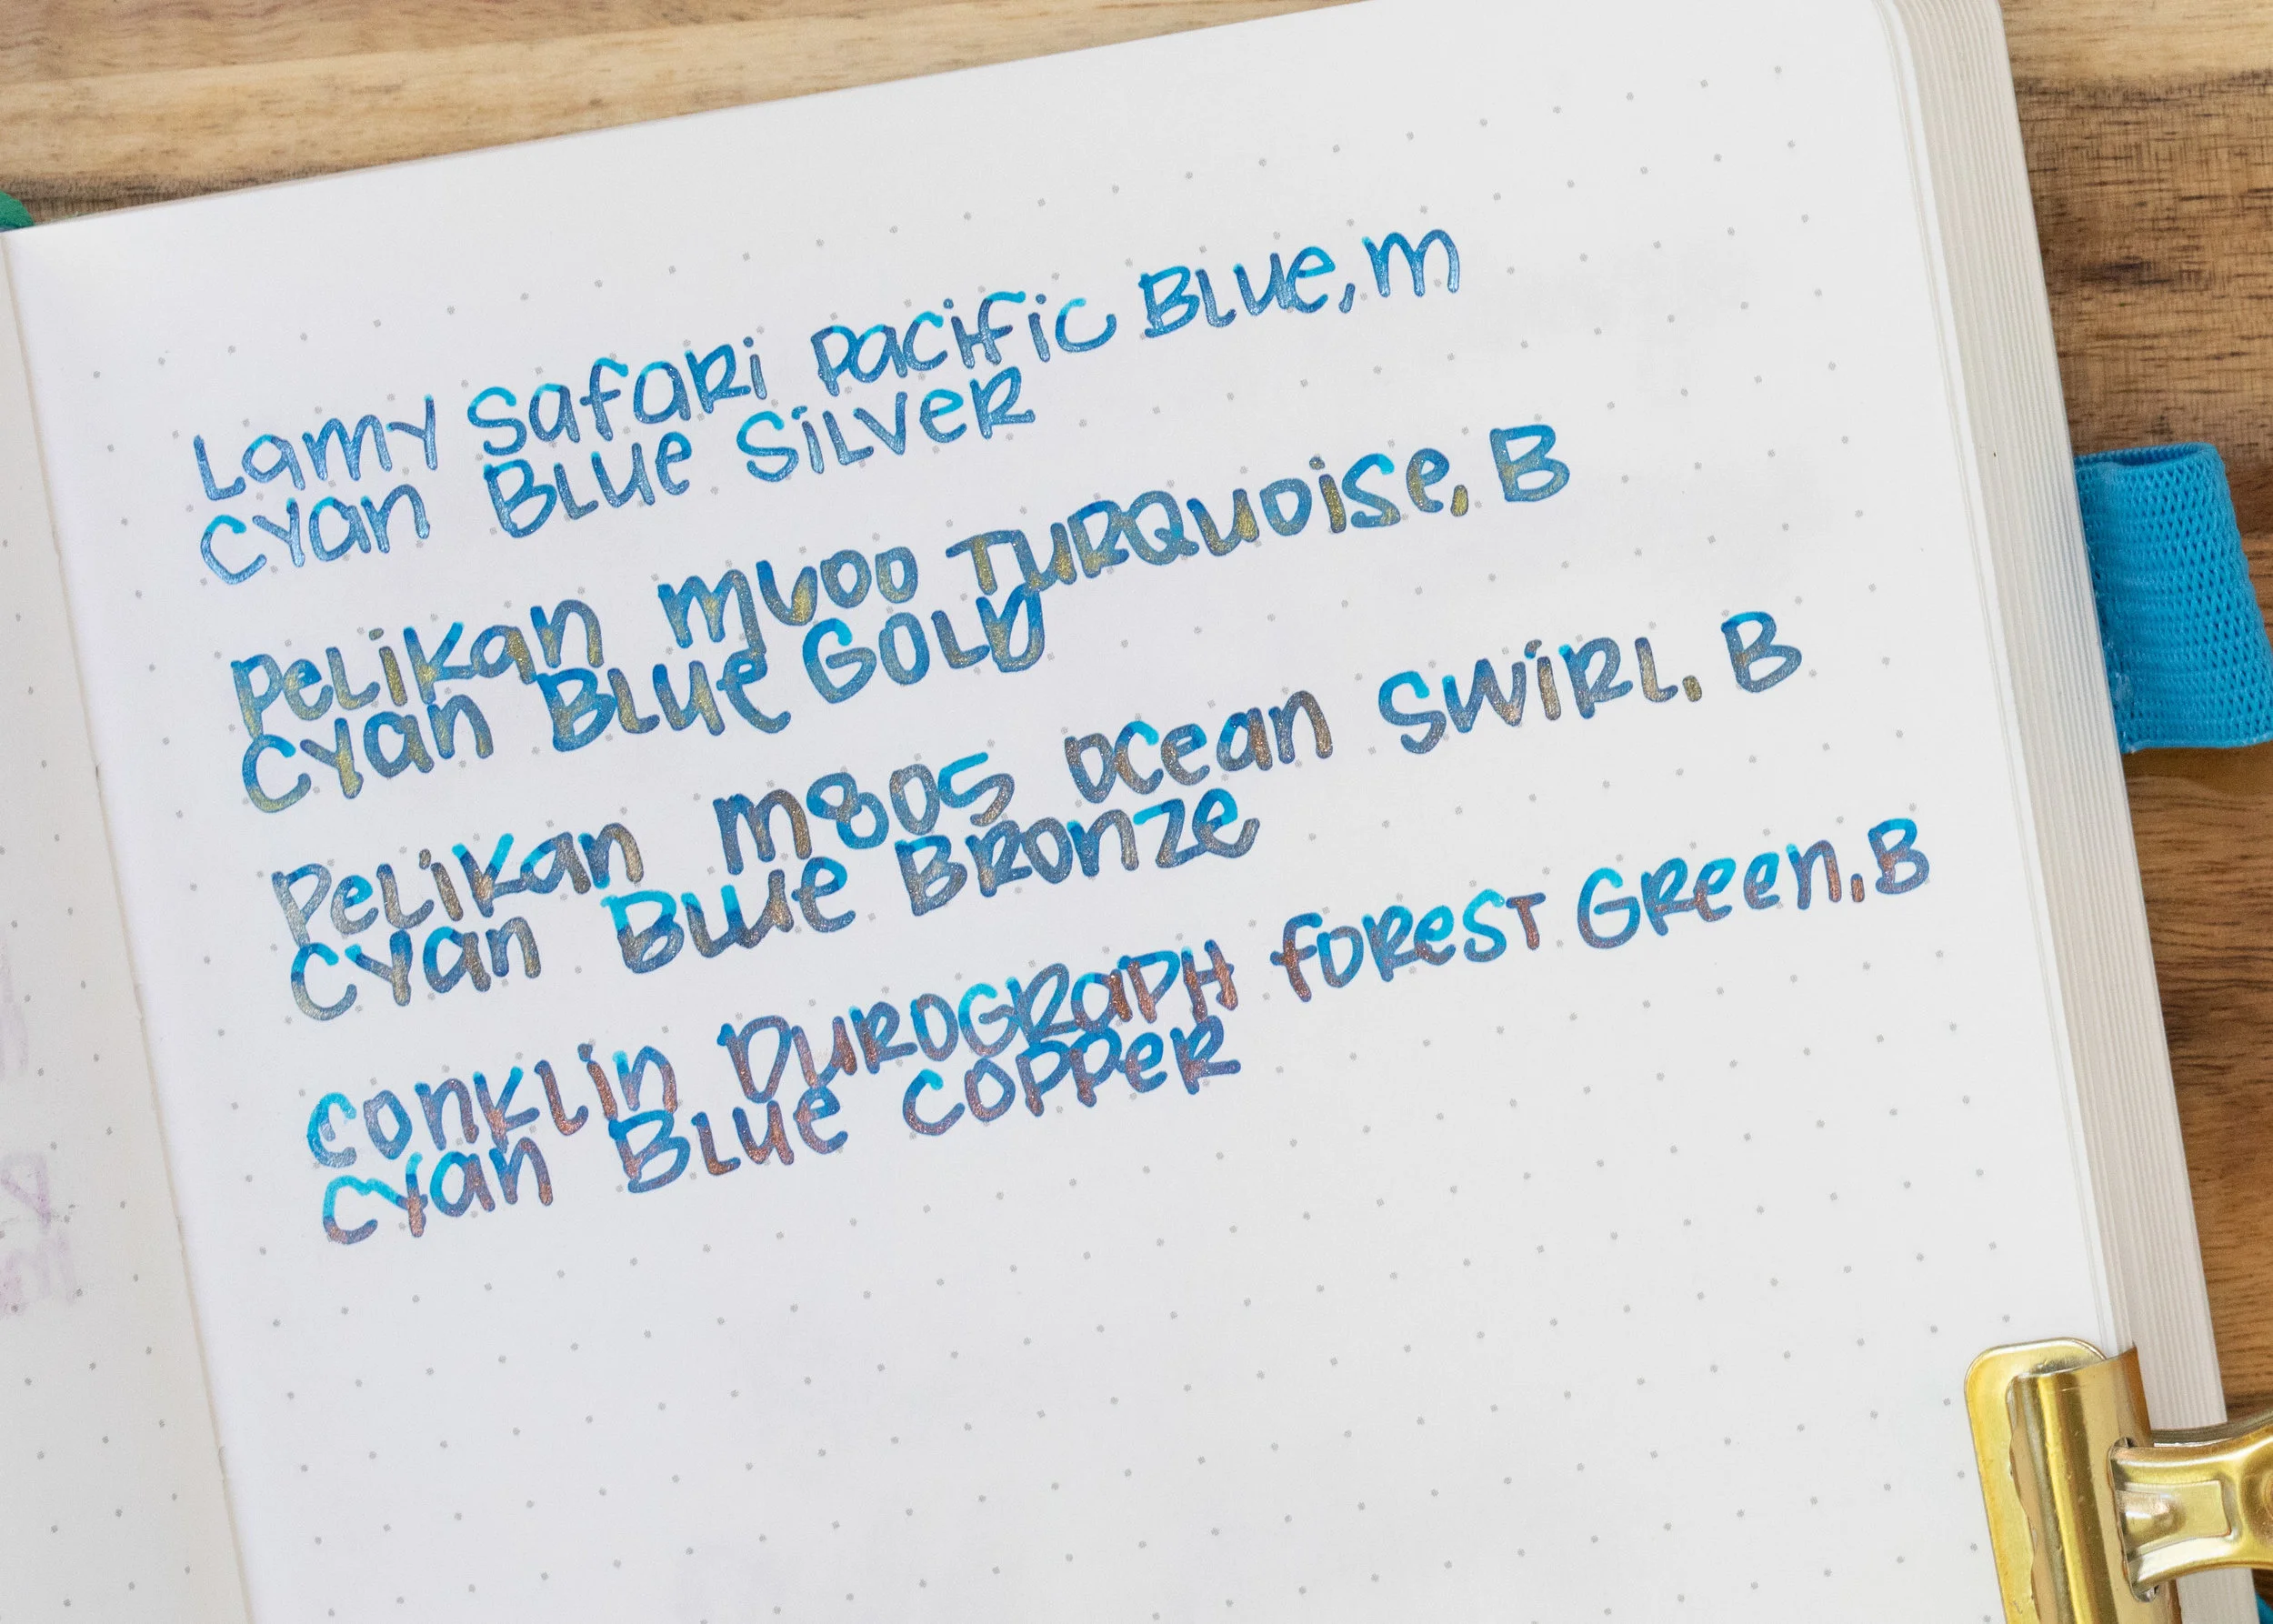 Lamy Safari Pacific Blue, M
Cyan Blue Silver
Pelikan M600 Turquoise, B
Cyan Blue Gold
Pelikan M805 Ocean Swirl, B
Cyan Blue Bronze
Conklin Durograph Forest Green, B
Cyan Blue Copper